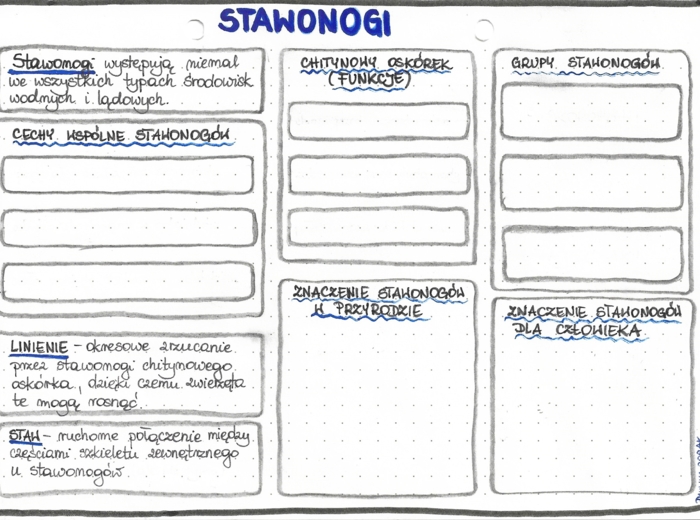 STAWONOGI
Stawonogi występują niemal
we wszystkich typach środowisk
wodnych i lądowych.
CECHY WSPÓLNE STAWONOGÓW
LINIENIE - okresowe zrzucanie
przez stawonogi chitynowego
oskórka, dzięki czemu zwierzęta
te mogą rosnąć.
STAW - ruchome połączenie między
częściami szkieletu zewnętrznego
u stawonogów.
CHITYNOWY OSKÓREK
(FUNKCJE)
ZNACZENIE STAWONOGÓW
W PRZYRODZIE
GRUPY STAWONOGÓW
ZNACZENIE STAWONOGÓW
DLA CZŁOWIEKA